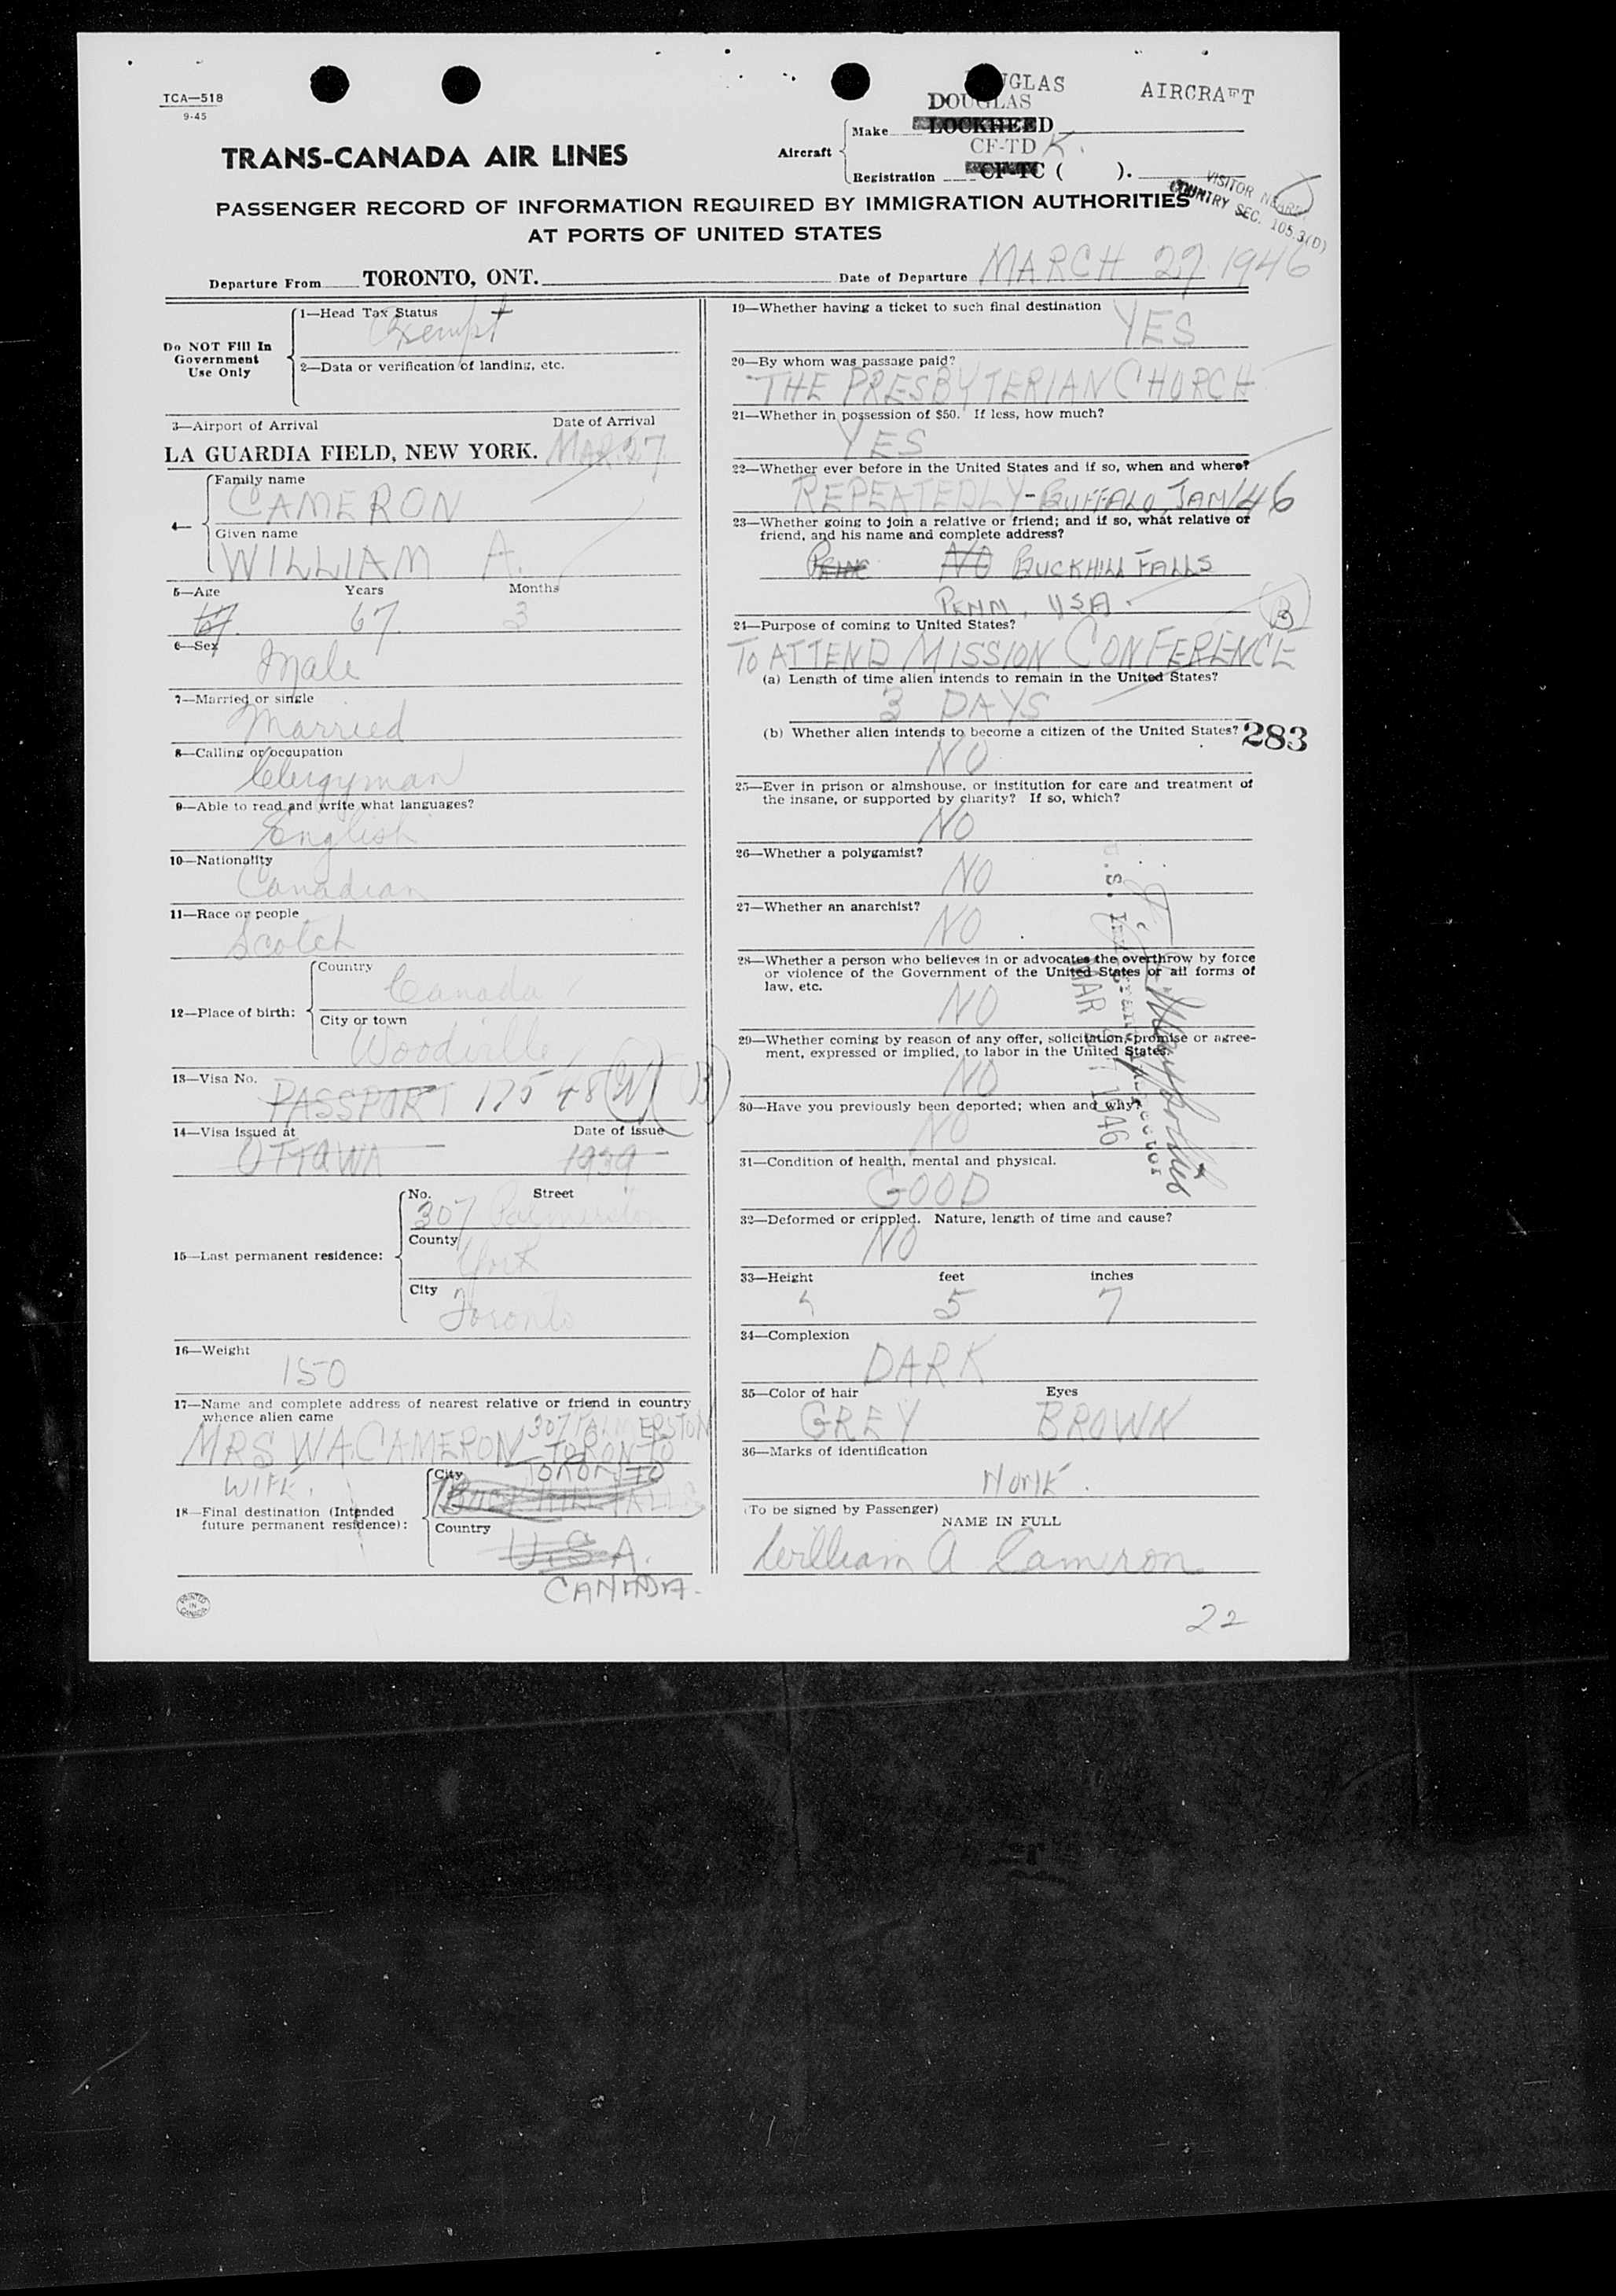 TCA—518
9-45
DOUGLAS AIRCRAFT
DOUGLAS
Make LOCKHEED
TRANS-CANADA AIR LINES
Aircraft
CF-TD K.
Registration CF-TC ( ).
VISITOR
COUNTRY SEC. 105.3(D)
PASSENGER RECORD OF INFORMATION REQUIRED BY IMMIGRATION AUTHORITIES
AT PORTS OF UNITED STATES
Departure From TORONTO, ONT. Date of Departure MARCH 27 1946
Do NOT Fill In
Government
Use Only
1—Head Tax Status
Exempt
2—Data or verification of landing, etc.
3—Airport of Arrival Date of Arrival
LA GUARDIA FIELD, NEW YORK. MAR 27
4—
Family name
CAMERON
Given name
WILLIAM A.
5—Age Years Months
67. 67. 3
6—Sex
Male
7—Married or single
Married
8—Calling or occupation
Clergyman
9—Able to read and write what languages?
English
10—Nationality
Canadian
11—Race or people
Scotch
12—Place of birth:
Country
Canada
City or town
Woodville
13—Visa No.
PASSPORT 17548
14—Visa issued at Date of issue
OTTAWA 1939
15—Last permanent residence:
No. Street
307 Palmerston
County
York
City
Toronto
16—Weight
150
17—Name and complete address of nearest relative or friend in country
whence alien came
307 PALMERSTON
MRS W.A. CAMERON TORONTO
WIFE.
18—Final destination (Intended
future permanent residence):
City TORONTO
BUCK HILL FALLS
Country
U.S.A.
CANADA.
PRINTED
IN
CANADA
19—Whether having a ticket to such final destination
YES
20—By whom was passage paid?
THE PRESBYTERIAN CHURCH
21—Whether in possession of $50. If less, how much?
YES
22—Whether ever before in the United States and if so, when and where?
REPEATEDLY - BUFFALO, JAN/46
23—Whether going to join a relative or friend; and if so, what relative or
friend, and his name and complete address?
NO BUCKHILL FALLS
PENN, USA.
24—Purpose of coming to United States? B
TO ATTEND MISSION CONFERENCE
(a) Length of time alien intends to remain in the United States?
3 DAYS
(b) Whether alien intends to become a citizen of the United States? 283
NO
25—Ever in prison or almshouse, or institution for care and treatment of
the insane, or supported by charity? If so, which?
NO
26—Whether a polygamist?
NO
27—Whether an anarchist?
NO
28—Whether a person who believes in or advocates the overthrow by force
or violence of the Government of the United States or all forms of
law, etc.
NO
29—Whether coming by reason of any offer, solicitation, promise or agree-
ment, expressed or implied, to labor in the United States.
NO
30—Have you previously been deported; when and why?
NO
31—Condition of health, mental and physical.
GOOD
32—Deformed or crippled. Nature, length of time and cause?
NO
33—Height feet inches
5 7
34—Complexion
DARK
35—Color of hair Eyes
GREY BROWN
36—Marks of identification
NONE.
(To be signed by Passenger)
NAME IN FULL
William A Cameron
22